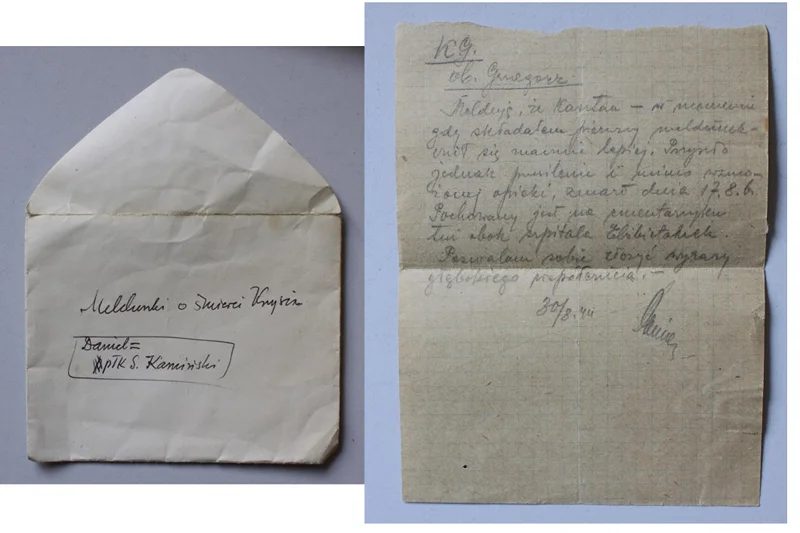 Meldunki o śmierci Krysia
Daniel =
płk S. Kamiński
KG.
ob. Grzegorz
Melduję, że Kapitan — w momencie
gdy składałem pierwszy meldunek-
czuł się znacznie lepiej. Przyszło
jednak i mimo wzmo-
żonej opieki, zmarł dnia 17.8.b.
Pochowany jest na cmentarzyku
tuż obok szpitala Elżbietanek.
Pozwalam sobie złożyć wyrazy
głębokiego współczucia. —
30/8.44